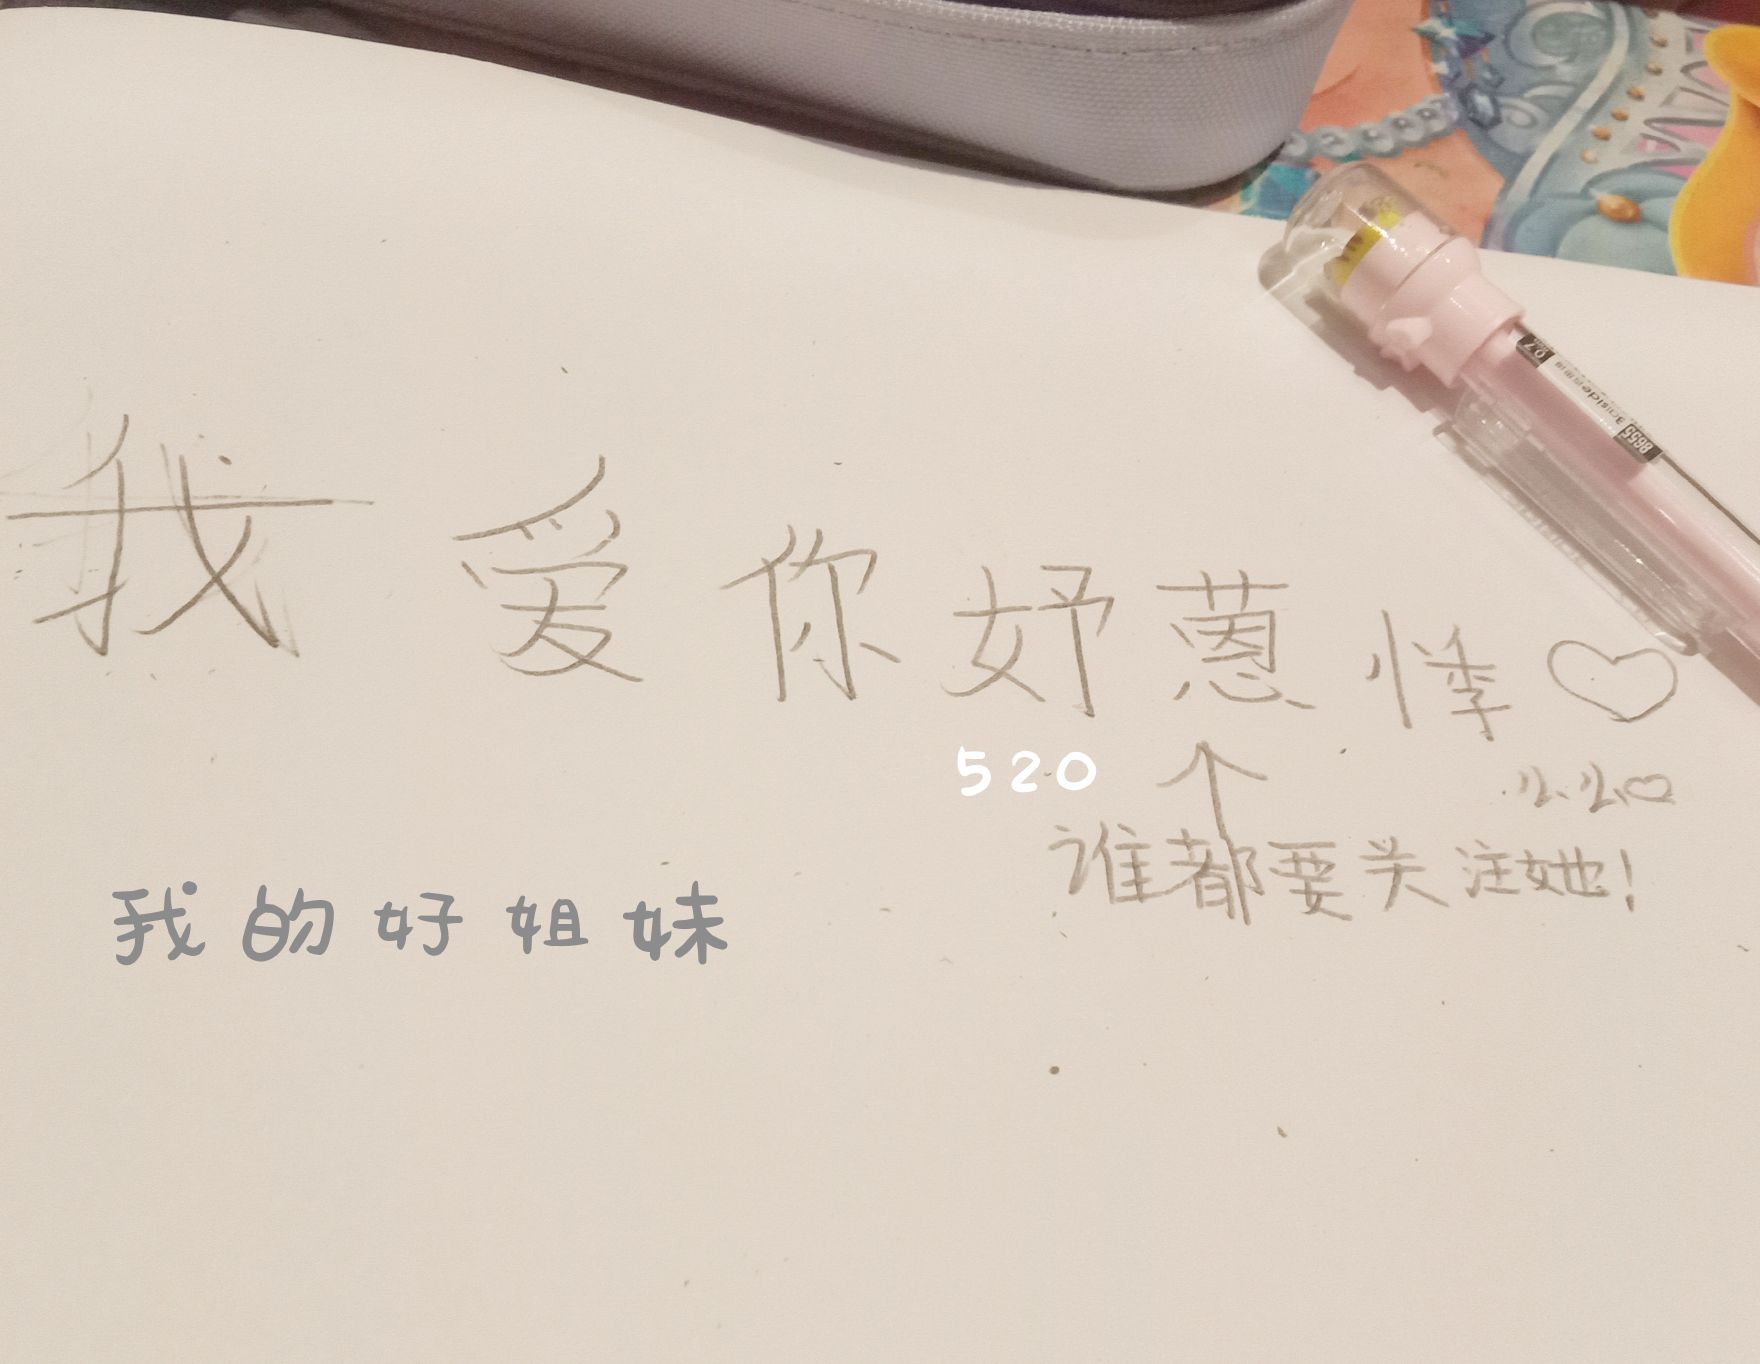 我爱你妤蒽悸♡
520
谁都要关注她!
我的好姐妹
0.7
8655